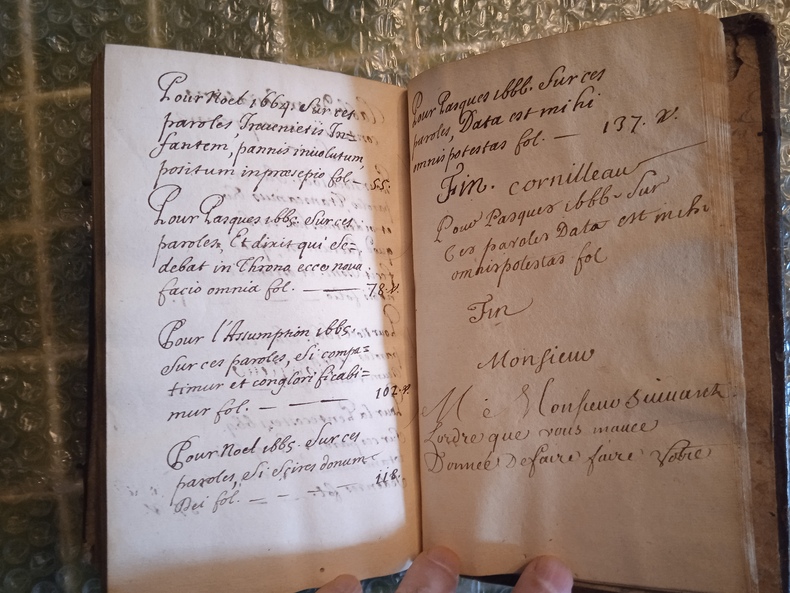 Pour Noel 1664. Sur ces
paroles Invenietis In=
fantem, pannis involutum
positum inpræsepio fol — 55.
Pour Pasques 1665. Sur ces
paroles, Et dixit qui Se=
debat in Throno ecce nova
facio omnia fol. — 78. v.
Pour l'Assumption 1665.
Sur ces paroles, Si compa=
timur et conglorificabi=
mur fol. — — 102. v.
Pour Noel 1665. Sur ces
paroles, Si scires donum
Dei fol. — — — 118.
Pour Pasques 1666. Sur ces
paroles, Data est mihi
omnis potestas fol. — 137. v.
Fin. cornilleau
Pour Pasques 1666. Sur
Ces paroles Data est mihi
omnis potestas fol
Fin
Monsieur
Monsieur Suivant
Lordre que vous mavez
Donnée De faire faire Votre